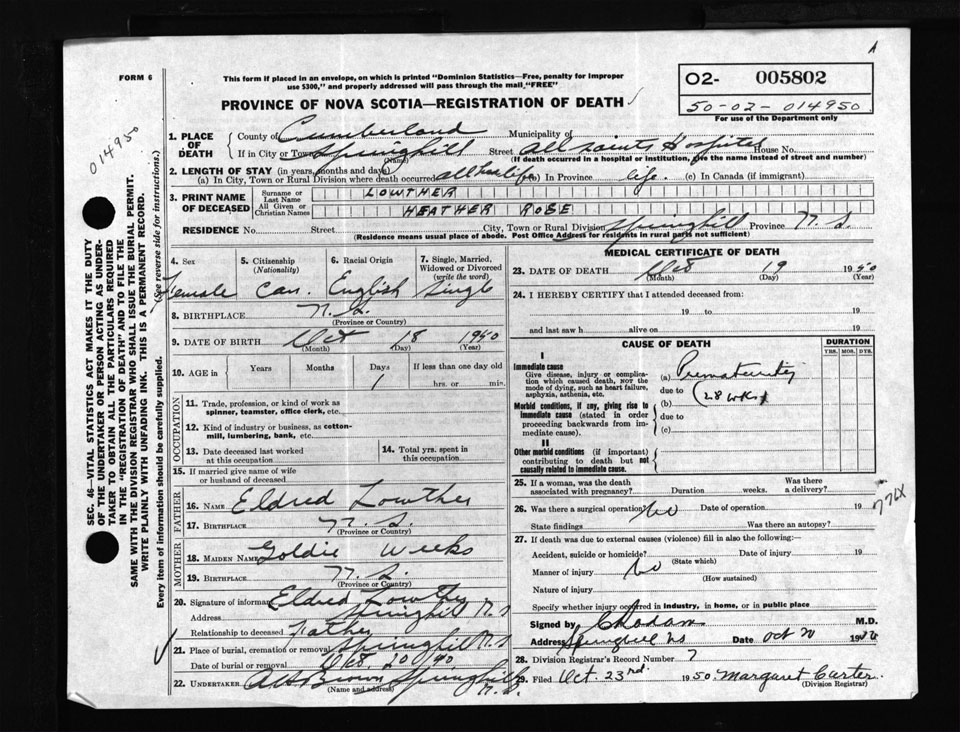 A
FORM 6
This form if placed in an envelope, on which is printed "Dominion Statistics—Free, penalty for improper
use $300," and properly addressed will pass through the mail "FREE"
O2- 005802
50-02-014950
For use of the Department only
PROVINCE OF NOVA SCOTIA—REGISTRATION OF DEATH
014950
SEC. 46—VITAL STATISTICS ACT MAKES IT THE DUTY
OF THE UNDERTAKER OR PERSON ACTING AS UNDER-
TAKER TO OBTAIN ALL THE PARTICULARS REQUIRED
IN THE "REGISTRATION OF DEATH" AND TO FILE THE
SAME WITH THE DIVISION REGISTRAR WHO SHALL ISSUE THE BURIAL PERMIT.
WRITE PLAINLY WITH UNFADING INK. THIS IS A PERMANENT RECORD.
Every item of information should be carefully supplied. (See reverse side for instructions.)
1. PLACE OF DEATH
County of Cumberland Municipality of
If in City or Town Springhill Street All Saints Hospital House No.
(Name) (If death occurred in a hospital or institution, give the name instead of street and number)
2. LENGTH OF STAY (in years, months and days)
(a) In City, Town or Rural Division where death occurred all her life (b) In Province life. (c) In Canada (if immigrant)
3. PRINT NAME OF DECEASED
Surname or Last Name LOWTHER
All Given or Christian Names HEATHER ROSE
RESIDENCE No. Street City, Town or Rural Division Springhill Province N.S.
(Residence means usual place of abode. Post Office Address for residents in rural parts not sufficient)
4. Sex 5. Citizenship (Nationality) 6. Racial Origin 7. Single, Married, Widowed or Divorced (write the word)
Female Can. English Single
8. BIRTHPLACE N.S.
(Province or Country)
9. DATE OF BIRTH Oct 18 1950
(Month) (Day) (Year)
10. AGE in Years Months Days If less than one day old
1 hrs. or min.
OCCUPATION
11. Trade, profession, or kind of work as
spinner, teamster, office clerk, etc.
12. Kind of industry or business, as cotton-
mill, lumbering, bank, etc.
13. Date deceased last worked
at this occupation
14. Total yrs. spent in
this occupation
15. If married give name of wife
or husband of deceased
FATHER
16. NAME Eldred Lowther
17. BIRTHPLACE N.S.
(Province or Country)
MOTHER
18. MAIDEN NAME Goldie Weeks
19. BIRTHPLACE N.S.
(Province or Country)
20. Signature of informant Eldred Lowther
Address Springhill N.S
Relationship to deceased Father
21. Place of burial, cremation or removal Springhill N.S
Date of burial or removal Oct 20/50
22. UNDERTAKER Brown Springhill N.S.
(Name and address)
MEDICAL CERTIFICATE OF DEATH
23. DATE OF DEATH Oct 19 1950
(Month) (Day) (Year)
24. I HEREBY CERTIFY that I attended deceased from:
19 to 19
and last saw h alive on 19
CAUSE OF DEATH DURATION
YRS. MOS. DYS.
I
Immediate cause
Give disease, injury or complica-
tion which caused death, NOT the
mode of dying, such as heart failure,
asphyxia, asthenia, etc.
(a) Prematurity
due to (28 wks)
Morbid conditions, if any, giving rise to
immediate cause (stated in order
proceeding backwards from im-
mediate cause).
(b)
due to
(c)
II
Other morbid conditions (if important)
contributing to death but not
causally related to immediate cause.
25. If a woman, was the death
associated with pregnancy? Duration weeks. Was there
a delivery?
26. Was there a surgical operation? No Date of operation 19
State findings Was there an autopsy?
776X
27. If death was due to external causes (violence) fill in also the following:—
Accident, suicide or homicide? Date of injury 19
(State which)
Manner of injury No
(How sustained)
Nature of injury
Specify whether injury occurred in industry, in home, or in public place
Signed by M.D.
Address Springhill NS Date Oct 20 19
28. Division Registrar's Record Number 7
29. Filed Oct. 23rd 1950. Margaret Carter.
(Division Registrar)